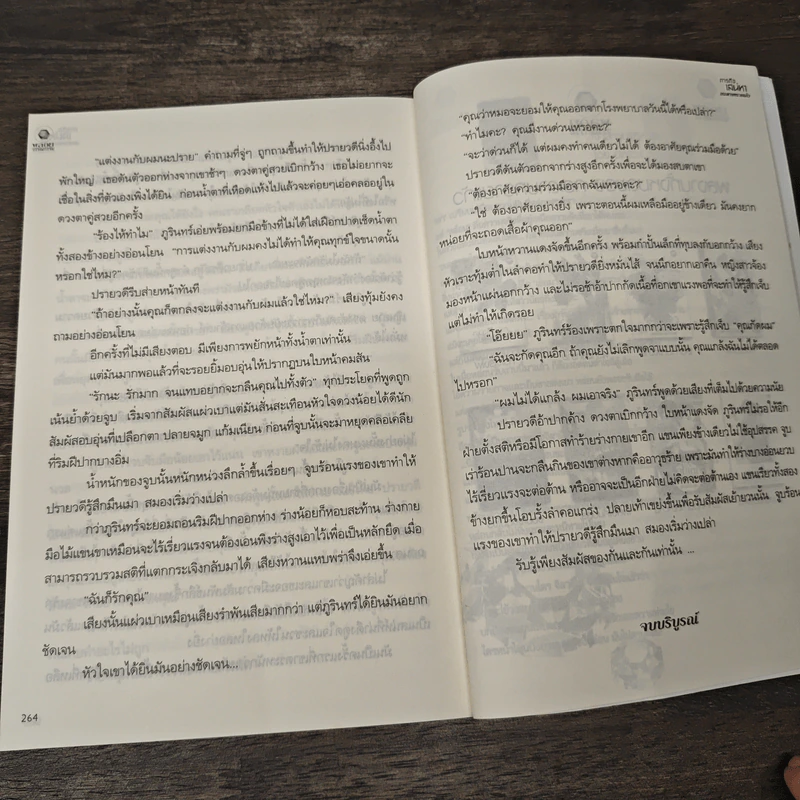 "แต่งงานกับผมนะปราย" คำถามที่จู่ๆ ถูกถามขึ้นทำให้ปรายวดีนิ่งอึ้งไป
พักใหญ่ เธอดันตัวออกห่างจากเขาช้าๆ ดวงตาคู่สวยเบิกกว้าง เธอไม่อยากจะ
เชื่อในสิ่งที่ตัวเองเพิ่งได้ยิน ก่อนน้ำตาที่เหือดแห้งไปแล้วจะค่อยๆเอ่อคลออยู่ใน
ดวงตาคู่สวยอีกครั้ง
"ร้องไห้ทำไม" ภูรินทร์เอ่ยพร้อมยกมือข้างที่ไม่ได้ใส่เฝือกปาดเช็ดน้ำตา
ทั้งสองข้างอย่างอ่อนโยน "การแต่งงานกับผมคงไม่ได้ทำให้คุณทุกข์ใจขนาดนั้น
หรอกใช่ไหม?"
ปรายวดีรีบส่ายหน้าทันที
"ถ้าอย่างนั้นคุณก็ตกลงจะแต่งงานกับผมแล้วใช่ไหม?" เสียงทุ้มยังคง
ถามอย่างอ่อนโยน
อีกครั้งที่ไม่มีเสียงตอบ มีเพียงการพยักหน้าทั้งน้ำตาเท่านั้น
แต่มันมากพอแล้วที่จะรอยยิ้มอบอุ่นให้ปรากฏบนใบหน้าคมสัน
"รักนะ รักมาก จนแทบอยากจะกลืนคุณไปทั้งตัว" ทุกประโยคที่พูดถูก
เน้นย้ำด้วยจูบ เริ่มจากสัมผัสแผ่วเบาแต่มันสั่นสะเทือนหัวใจดวงน้อยได้ดีนัก
สัมผัสอบอุ่นที่เปลือกตา ปลายจมูก แก้มเนียน ก่อนที่จูบนั้นจะมาหยุดคลอเคลีย
ที่ริมฝีปากบางอิ่ม
น้ำหนักของจูบนั้นหนักหน่วงลึกล้ำขึ้นเรื่อยๆ จูบร้อนแรงของเขาทำให้
ปรายวดีรู้สึกมึนเมา สมองเริ่มว่างเปล่า
กว่าภูรินทร์จะยอมถอนริมฝีปากออกห่าง ร่างน้อยก็หอบสะท้าน ร่างกาย
มือไม้แขนขาเหมือนจะไร้เรี่ยวแรงจนต้องเอนพิงร่างสูงเอาไว้เพื่อเป็นหลักยึด เมื่อ
สามารถรวบรวมสติที่แตกกระเจิงกลับมาได้ เสียงหวานแหบพร่าจึงเอ่ยขึ้น
"ฉันก็รักคุณ"
เสียงนั้นแผ่วเบาเหมือนเสียงรำพันเสียมากกว่า แต่ภูรินทร์ได้ยินมันอยาก
ชัดเจน
หัวใจเขาได้ยินมันอย่างชัดเจน...
264
ภารกิจ
เสน่หา
"คุณว่าหมอจะยอมให้คุณออกจากโรงพยาบาลวันนี้ได้หรือเปล่า?"
"ทำไมคะ? คุณมีงานด่วนเหรอคะ?"
"จะว่าด่วนก็ได้ แต่ผมคงทำคนเดียวไม่ได้ ต้องอาศัยคุณร่วมมือด้วย"
ปรายวดีดันตัวออกจากร่างสูงอีกครั้งเพื่อจะได้มองสบตาเขา
"ต้องอาศัยความร่วมมือจากฉันเหรอคะ?"
"ใช่ ต้องอาศัยอย่างยิ่ง เพราะตอนนี้ผมเหลือมืออยู่ข้างเดียว มันคงยาก
หน่อยที่จะถอดเสื้อผ้าคุณออก"
ใบหน้าหวานแดงจัดขึ้นอีกครั้ง พร้อมกำปั้นเล็กที่ทุบลงกับอกกว้าง เสียง
หัวเราะทุ้มต่ำในลำคอทำให้ปรายวดียิ่งหมั่นไส้ จนนึกอยากเอาคืน หญิงสาวจ้อง
มองหน้าแผ่นอกกว้าง และไม่รอช้าอ้าปากกัดเนื้อที่อกเขาแรงพอที่จะทำให้รู้สึกเจ็บ
แต่ไม่ทำให้เกิดรอย
"โอ๊ยยย" ภูรินทร์ร้องเพราะตกใจมากกว่าจะเพราะรู้สึกเจ็บ "คุณกัดผม"
"ฉันจะกัดคุณอีก ถ้าคุณยังไม่เลิกพูดจาแบบนั้น คุณแกล้งฉันไม่ได้ตลอด
ไปหรอก"
"ผมไม่ได้แกล้ง ผมเอาจริง" ภูรินทร์พูดด้วยเสียงที่เต็มไปด้วยความนัย
ปรายวดีอ้าปากค้าง ดวงตาเบิกกว้าง ใบหน้าแดงจัด ภูรินทร์ไม่รอให้อีก
ฝ่ายตั้งสติหรือมีโอกาสทำร้ายร่างกายเขาอีก แขนเพียงข้างเดียวไม่ใช้อุปสรรค จูบ
เร่าร้อนปานจะกลืนกินของเขาต่างหากคืออาวุธร้าย เพราะมันทำให้ร่างบางอ่อนยวบ
ไร้เรี่ยวแรงจะต่อต้าน หรืออาจจะเป็นอีกฝ่ายไม่คิดจะต่อต้านเอง แขนเรียวทั้งสอง
ข้างยกขึ้นโอบรั้งลำคอแกร่ง ปลายเท้าเขย่งขึ้นเพื่อรับสัมผัสเย้ายวนนั้น จูบร้อน
แรงของเขาทำให้ปรายวดีรู้สึกมึนเมา สมองเริ่มว่างเปล่า
รับรู้เพียงสัมผัสของกันและกันเท่านั้น ...
จบบริบูรณ์